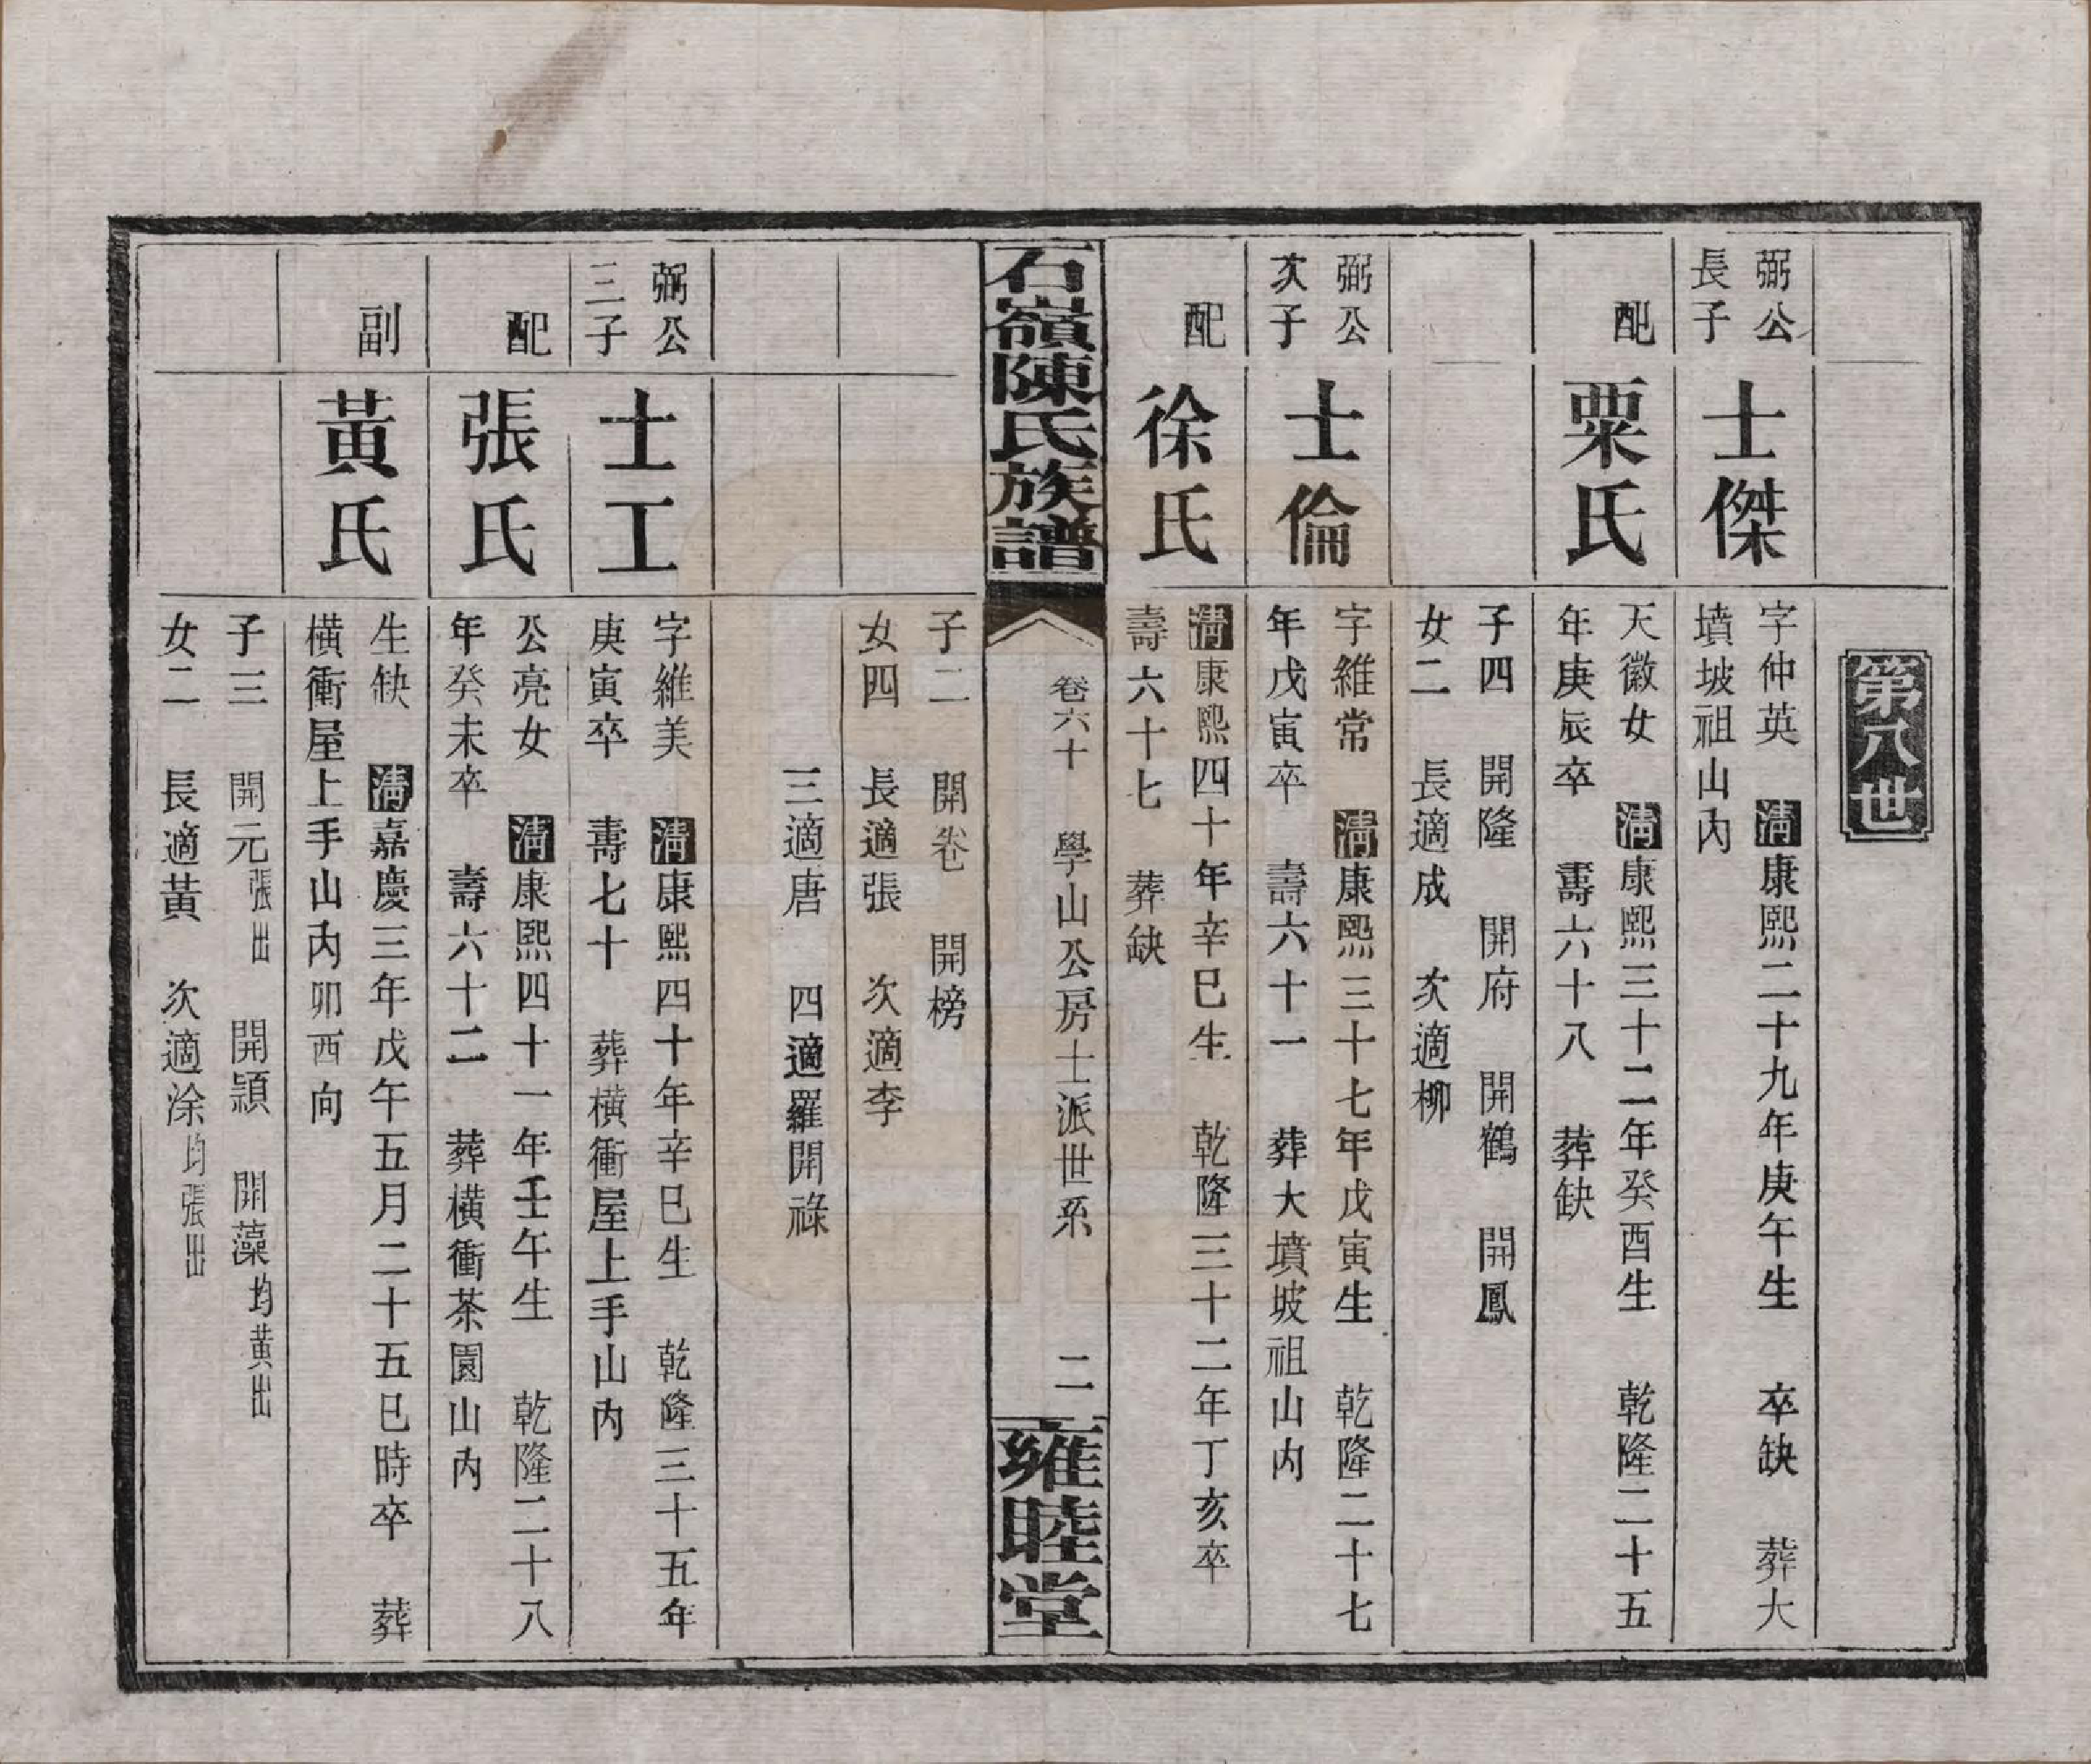 第八世
弼公
長子
士傑
字仲英　清康熙二十九年庚午生　卒缺　葬大
墳坡祖山內
配
粟氏
天徽女　清康熙三十二年癸酉生　乾隆二十五
年庚辰卒　壽六十八　葬缺
子四　開隆　開府　開鶴　開鳳
女二　長適成　次適柳
弼公
次子
士倫
字維常　清康熙三十七年戊寅生　乾隆二十七
年戊寅卒　壽六十一　葬大墳坡祖山內
配
徐氏
清康熙四十年辛巳生　乾隆三十二年丁亥卒
壽六十七　葬缺
石嶺陳氏族譜
卷六十　學山公房士派世系　二
雍睦堂
子二　開卷　開榜
女四　長適張　次適李
三適唐　四適羅開祿
弼公
三子
士工
字維美　清康熙四十年辛巳生　乾隆三十五年
庚寅卒　壽七十　葬橫衝屋上手山內
配
張氏
公亮女　清康熙四十一年壬午生　乾隆二十八
年癸未卒　壽六十二　葬橫衝茶園山內
副
黃氏
生缺　清嘉慶三年戊午五月二十五巳時卒　葬
橫衝屋上手山內卯西向
子三　開元張出　開頴　開藻均黃出
女二　長適黃　次適涂均張出